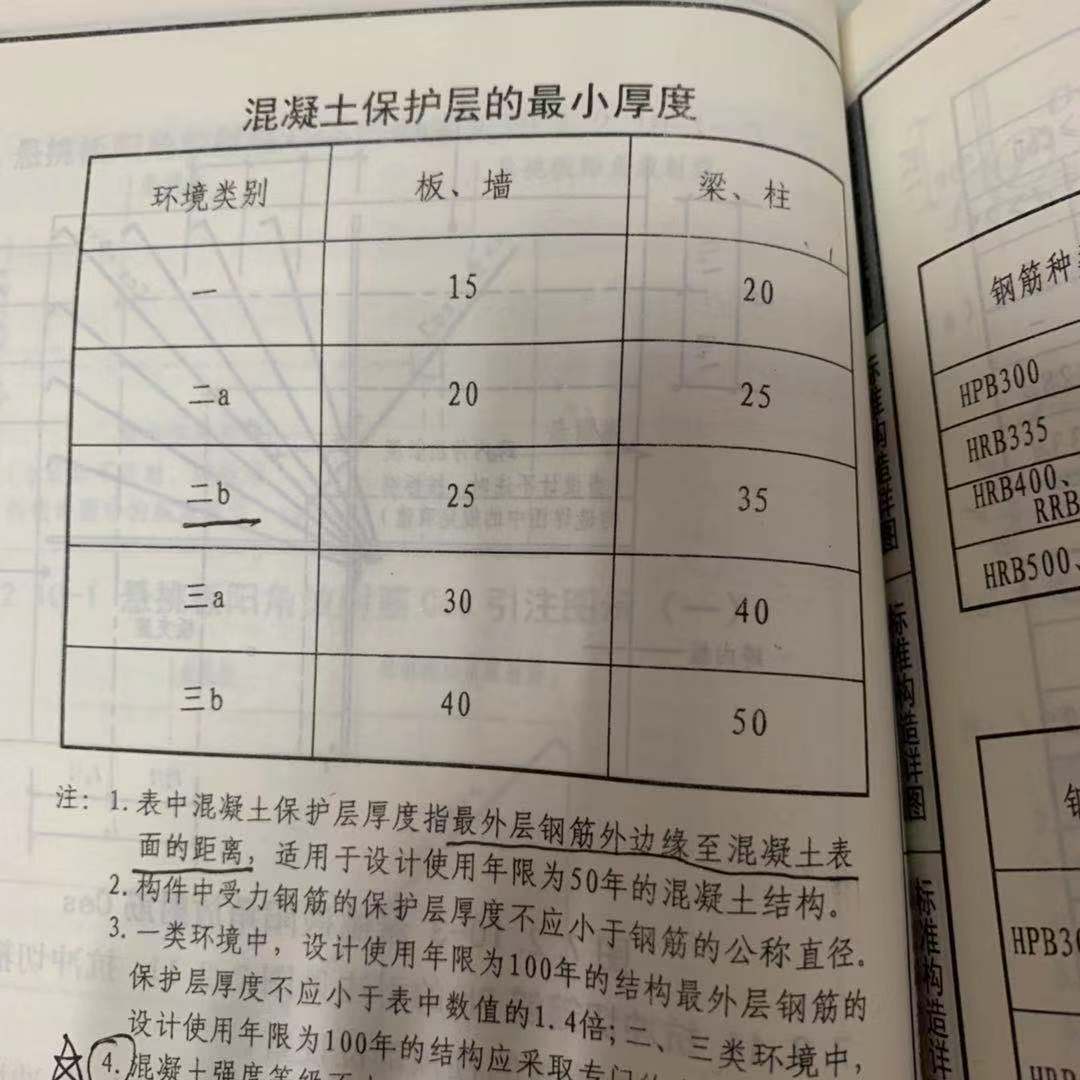 混凝土保护层的最小厚度
环境类别 板、墙 梁、柱
一 15 20
二a 20 25
二b 25 35
三a 30 40
三b 40 50
注：1.表中混凝土保护层厚度指最外层钢筋外边缘至混凝土表
面的距离，适用于设计使用年限为50年的混凝土结构。
2.构件中受力钢筋的保护层厚度不应小于钢筋的公称直径。
3.一类环境中，设计使用年限为100年的结构最外层钢筋的
保护层厚度不应小于表中数值的1.4倍；二、三类环境中，
设计使用年限为100年的结构应采取专门的
4.混凝土强度等级不
标准构造详图
标准构造详图
标准构造详
钢筋种
HPB300
HRB335
HRB400、
RRB
HRB500、
HPB30